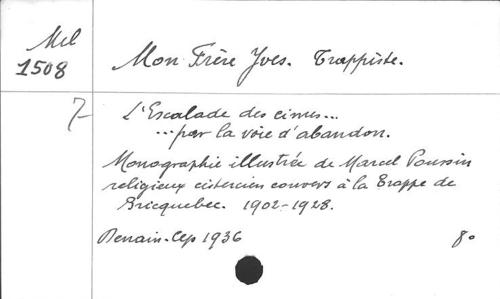 Mel
1508
Mon Frère Yves. Trappiste.
7
L'Escalade des cimes...
...par la voie d'abandon.
Monographie illustrée de Marcel Poussin
religieux cistercien convers à la Trappe de
Bricquebec. 1902-1928.
Denain. Cep 1936
8º